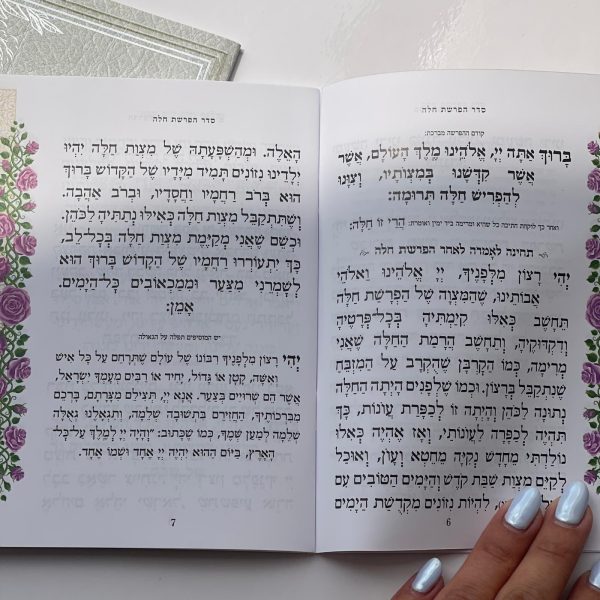 סדר הפרשת חלה
קודם ההפרשה מברכת:
בָּרוּךְ אַתָּה יְיָ, אֱלֹהֵינוּ מֶלֶךְ הָעוֹלָם, אֲשֶׁר
אֲשֶׁר קִדְּשָׁנוּ בְּמִצְוֹתָיו, וְצִוָּנוּ
לְהַפְרִישׁ חַלָּה תְּרוּמָה:
ואחר כך לוקחת החתיכה בל שהיא ומרימה ביד ימין ואומרת: הֲרֵי זוֹ חַלָּה:
תחינה לאמרה לאחר הפרשת חלה
יְהִי רָצוֹן מִלְּפָנֶיךָ, יְיָ אֱלֹהֵינוּ וֵאלֹהֵי
אֲבוֹתֵינוּ, שֶׁהַמִּצְוָה שֶׁל הַפְרָשַׁת חַלָּה
תֵּחָשֵׁב כְּאִלּוּ קִיַּמְתִּיהָ בְּכָל־פְּרָטֶיהָ
וְדִקְדּוּקֶיהָ, וְתֵחָשֵׁב הֲרָמַת הַחַלָּה שֶׁאֲנִי
מְרִימָה, כְּמוֹ הַקָּרְבָּן שֶׁהֻקְרַב עַל הַמִּזְבֵּחַ
שֶׁנִּתְקַבֵּל בְּרָצוֹן. וּכְמוֹ שֶׁלְּפָנִים הָיְתָה הַחַלָּה
נְתוּנָה לַכֹּהֵן וְהָיְתָה זוֹ לְכַפָּרַת עֲוֹנוֹת, כָּךְ
תִּהְיֶה לְכַפָּרָה לַעֲוֹנוֹתַי, וְאָז אֶהְיֶה כְּאִלּוּ
נוֹלַדְתִּי מֵחָדָשׁ נְקִיָּה מֵחֵטְא וְעָוֹן, וְאוּכַל
לְקַיֵּם מִצְוַת שַׁבַּת קֹדֶשׁ וְהַיָּמִים הַטּוֹבִים עִם
לִהְיוֹת נִזּוֹנִים מִקְּדֻשַּׁת הַיָּמִים
6
סדר הפרשת חלה
הָאֵלֶּה. וּמֵהַשְׁפָּעָתָהּ שֶׁל מִצְוַת חַלָּה יִהְיוּ
יְלָדֵינוּ נִזּוֹנִים תָּמִיד מִיָּדָיו שֶׁל הַקָּדוֹשׁ בָּרוּךְ
הוּא בְּרֹב רַחֲמָיו וַחֲסָדָיו, וּבְרֹב אַהֲבָה.
וְשֶׁתִּתְקַבֵּל מִצְוַת חַלָּה כְּאִילּוּ נְתַתִּיהָ לַכֹּהֵן.
וּכְשֵׁם שֶׁאֲנִי מְקַיֶּמֶת מִצְוַת חַלָּה בְּכָל־לֵב,
כָּךְ יִתְעוֹרְרוּ רַחֲמָיו שֶׁל הַקָּדוֹשׁ בָּרוּךְ הוּא
לְשָׁמְרֵנִי מִצַּעַר וּמִמַּכְאוֹבִים כָּל־הַיָּמִים.
אָמֵן:
יש המוסיפים תפלה על הגאולה
יְהִי רָצוֹן מִלְּפָנֶיךָ רִבּוֹנוֹ שֶׁל עוֹלָם שֶׁתְּרַחֵם עַל כָּל אִישׁ
וְאִשָּׁה, קָטָן אוֹ גָּדוֹל, יָחִיד אוֹ רַבִּים מֵעַמְּךָ יִשְׂרָאֵל,
אֲשֶׁר הֵם שְׁרוּיִים בְּצַעַר. אָנָּא יְיָ, תַּצִּילֵם מִצָּרָתָם, בָּרְכֵם
מִבִּרְכוֹתֶיךָ, הַחֲזִירֵם בִּתְשׁוּבָה שְׁלֵמָה, וְתִגְאָלֵנוּ גְּאֻלָּה
שְׁלֵמָה לְמַעַן שְׁמֶךָ, כְּמוֹ שֶׁכָּתוּב: "וְהָיָה יְיָ לְמֶלֶךְ עַל־כָּל־
הָאָרֶץ, בַּיּוֹם הַהוּא יִהְיֶה יְיָ אֶחָד וּשְׁמוֹ אֶחָד.
7